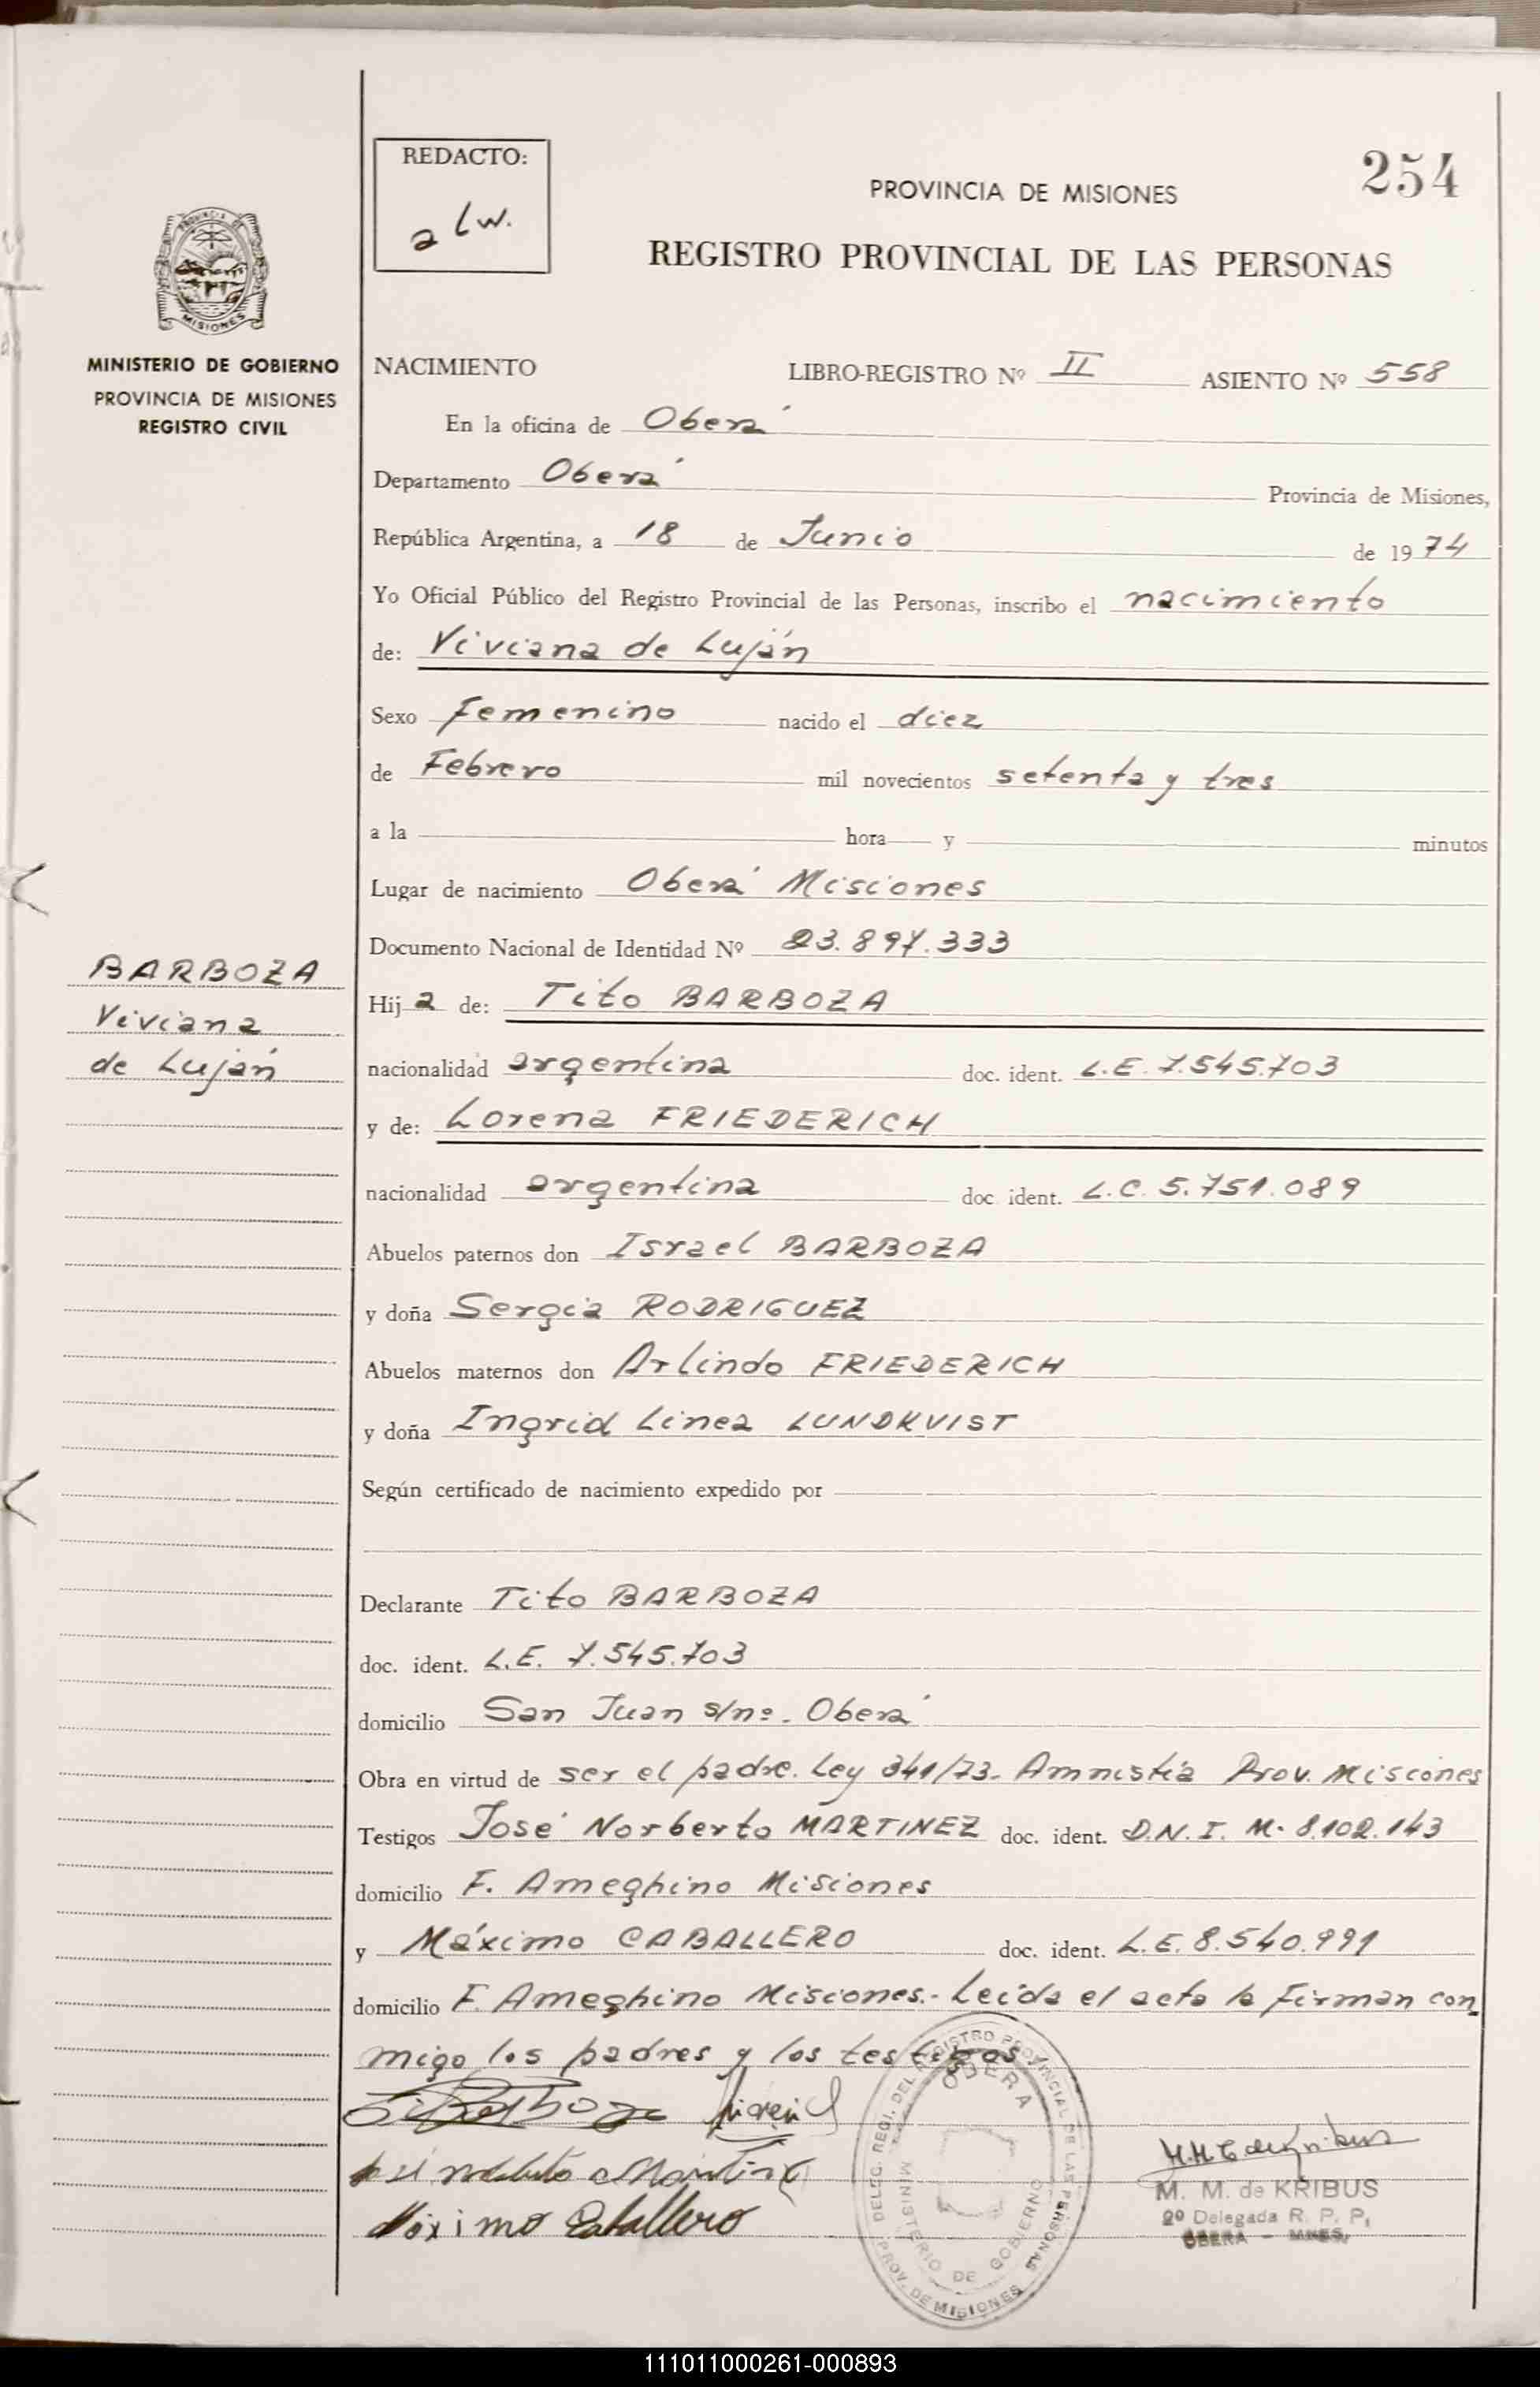 254
REDACTO:
a lw.
PROVINCIA DE MISIONES
REGISTRO PROVINCIAL DE LAS PERSONAS
PROVINCIA DE
MISIONES
MINISTERIO DE GOBIERNO
PROVINCIA DE MISIONES
REGISTRO CIVIL
NACIMIENTO LIBRO-REGISTRO Nº II ASIENTO Nº 558
En la oficina de Oberá
Departamento Oberá Provincia de Misiones,
República Argentina, a 18 de Junio de 1974
Yo Oficial Público del Registro Provincial de las Personas, inscribo el nacimiento
de: Viviana de Luján
Sexo Femenino nacido el diez
de Febrero mil novecientos setenta y tres
a la hora y minutos
Lugar de nacimiento Oberá Misiones
Documento Nacional de Identidad Nº 23.897.333
BARBOZA
Viviana
de Luján
Hija de: Tito BARBOZA
nacionalidad argentina doc. ident. L.E. 7.545.703
y de: Lorena FRIEDERICH
nacionalidad argentina doc. ident. L.C. 5.751.089
Abuelos paternos don Israel BARBOZA
y doña Sergia RODRIGUEZ
Abuelos maternos don Arlindo FRIEDERICH
y doña Ingrid Linea LUNDKVIST
Según certificado de nacimiento expedido por
Declarante Tito BARBOZA
doc. ident. L.E. 7.545.703
domicilio San Juan s/nº. Oberá
Obra en virtud de ser el padre. Ley 341/73. Amnistía Prov. Misiones
Testigos José Norberto MARTINEZ doc. ident. D.N.I. M. 8.102.143
domicilio F. Ameghino Misiones
y Máximo CABALLERO doc. ident. L.E. 8.540.991
domicilio F. Ameghino Misiones.- Leída el acta la firman con
migo los padres y los testigos.
Máximo Caballero
DELEG. REGI. DEL REGISTRO PROVINCIAL DE LAS PERSONAS
OBERA
MINISTERIO DE GOBIERNO
PROV. DE MISIONES
M. M. de KRIBUS
2º Delegada R. P. P.
OBERA - MNES.
111011000261-000893